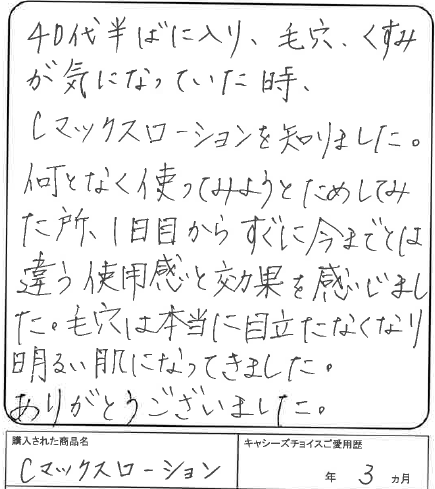 40代半ばに入り、毛穴、くすみ
が気になっていた時、
Cマックスローションを知りました。
何となく使ってみようとためしてみ
た所、1日目からすぐに今までとは
違う使用感と効果を感じまし
た。毛穴は本当に目立たなくなり
明るい肌になってきました。
ありがとうございました。
購入された商品名
Cマックスローション
キャシーズチョイスご愛用歴
年 3 ヵ月